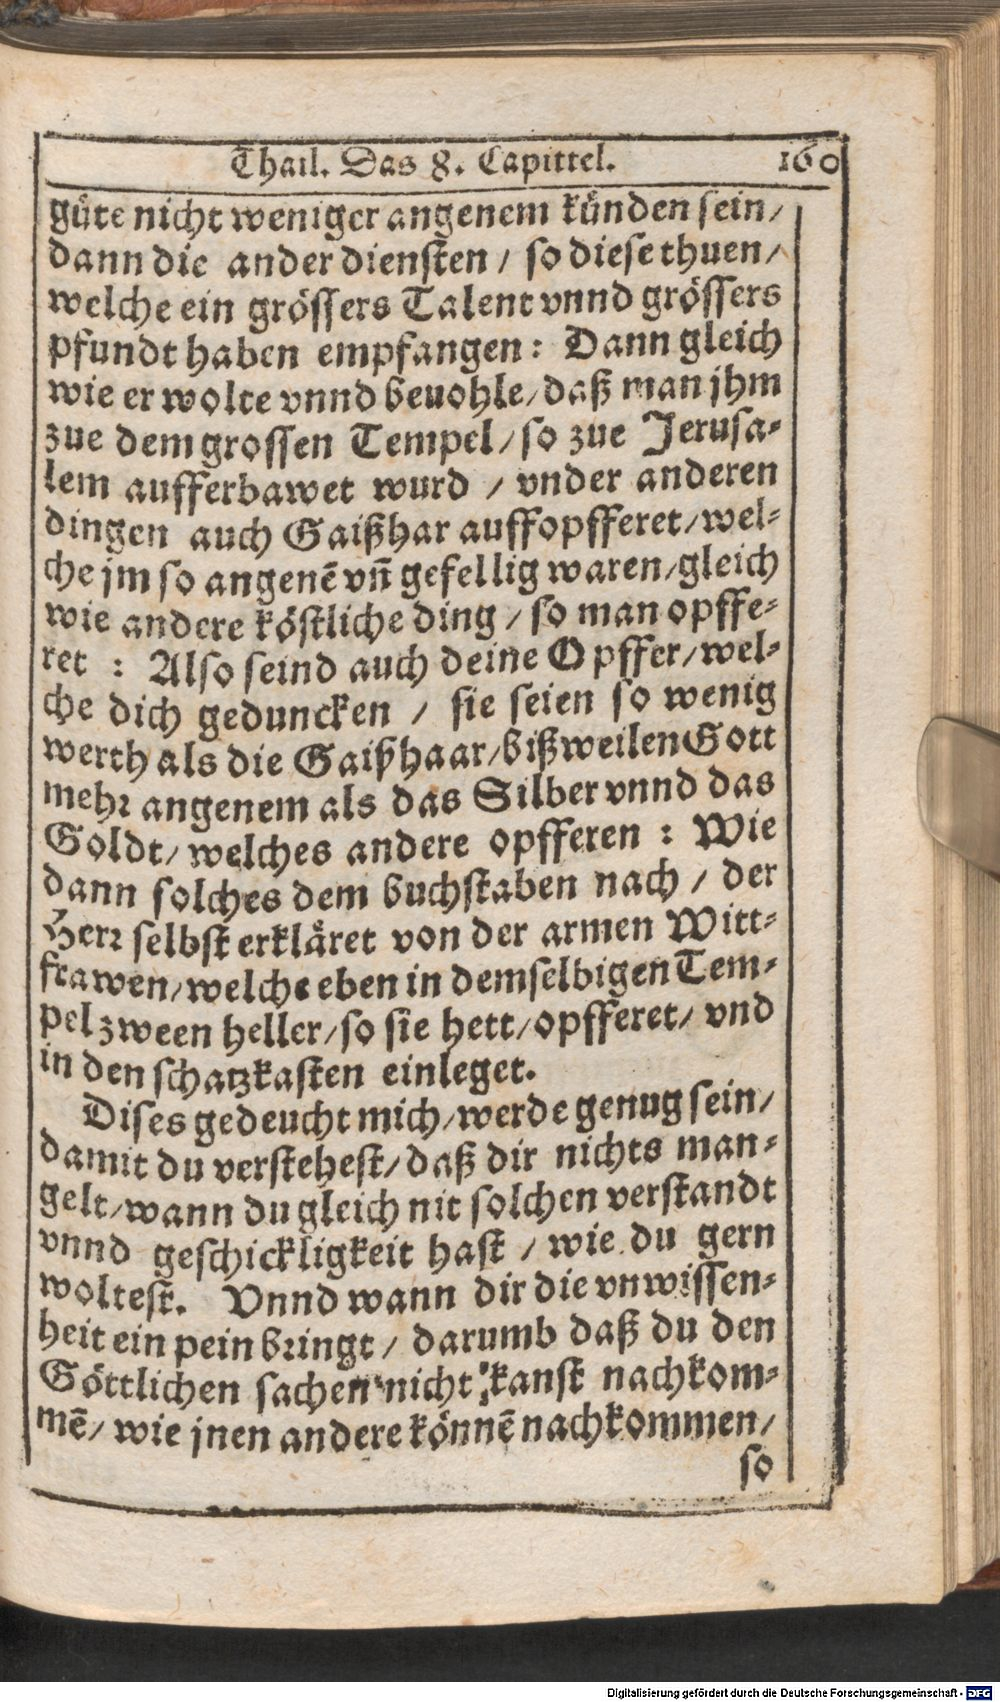 Thail. Das 8. Capittel. 160
güte nicht weniger angenem künden sein/
dann die ander diensten / so diese thuen/
welche ein grössers Talent vnnd grössers
pfundt haben empfangen: Dann gleich
wie er wolte vnnd beuohle/daß man jhm
zue dem grossen Tempel/so zue Jerusa-
lem aufferbawet wurd / vnder anderen
dingen auch Gaißhar auffopfferet/wel-
che jm so angenē vñ gefellig waren/gleich
wie andere köstliche ding / so man opffe-
ret : Also seind auch deine Opffer/wel-
che dich geduncken / sie seien so wenig
werth als die Gaißhaar/bißweilen Gott
mehr angenem als das Silber vnnd das
Goldt/welches andere opfferen : Wie
dann solches dem buchstaben nach / der
Herr selbst erkläret von der armen Witt-
frawen/welche eben in demselbigen Tem-
pel zween heller/so sie hett/opfferet/ vnd
in den schatzkasten einleget.
Dises gedeucht mich/werde genug sein/
damit du verstehest/daß dir nichts man-
gelt/wann du gleich nit solchen verstandt
vnnd geschickligkeit hast / wie du gern
woltest. Vnnd wann dir die vnwissen-
heit ein pein bringt/ darumb daß du den
Göttlichen sachen nicht kanst nachkom-
mē/ wie jnen andere könnē nachkommen/
so
Digitalisierung gefördert durch die Deutsche Forschungsgemeinschaft - DFG